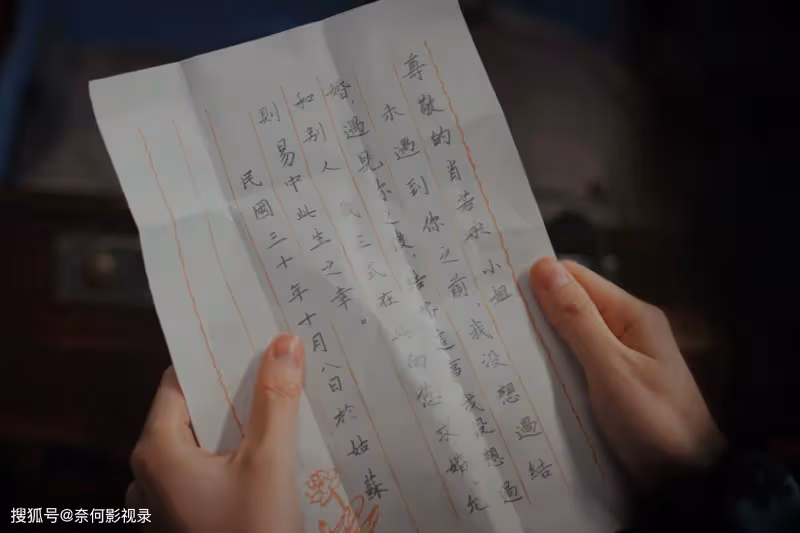 尊敬的肖若彤小姐
未遇到你之前，我没想過結
婚，遇見你之後，結婚這事我没想過
和别人 我正式在此向您求婚 允
则易中此生之幸。
民國三十年十月八日於姑蘇
搜狐号@奈何影视录